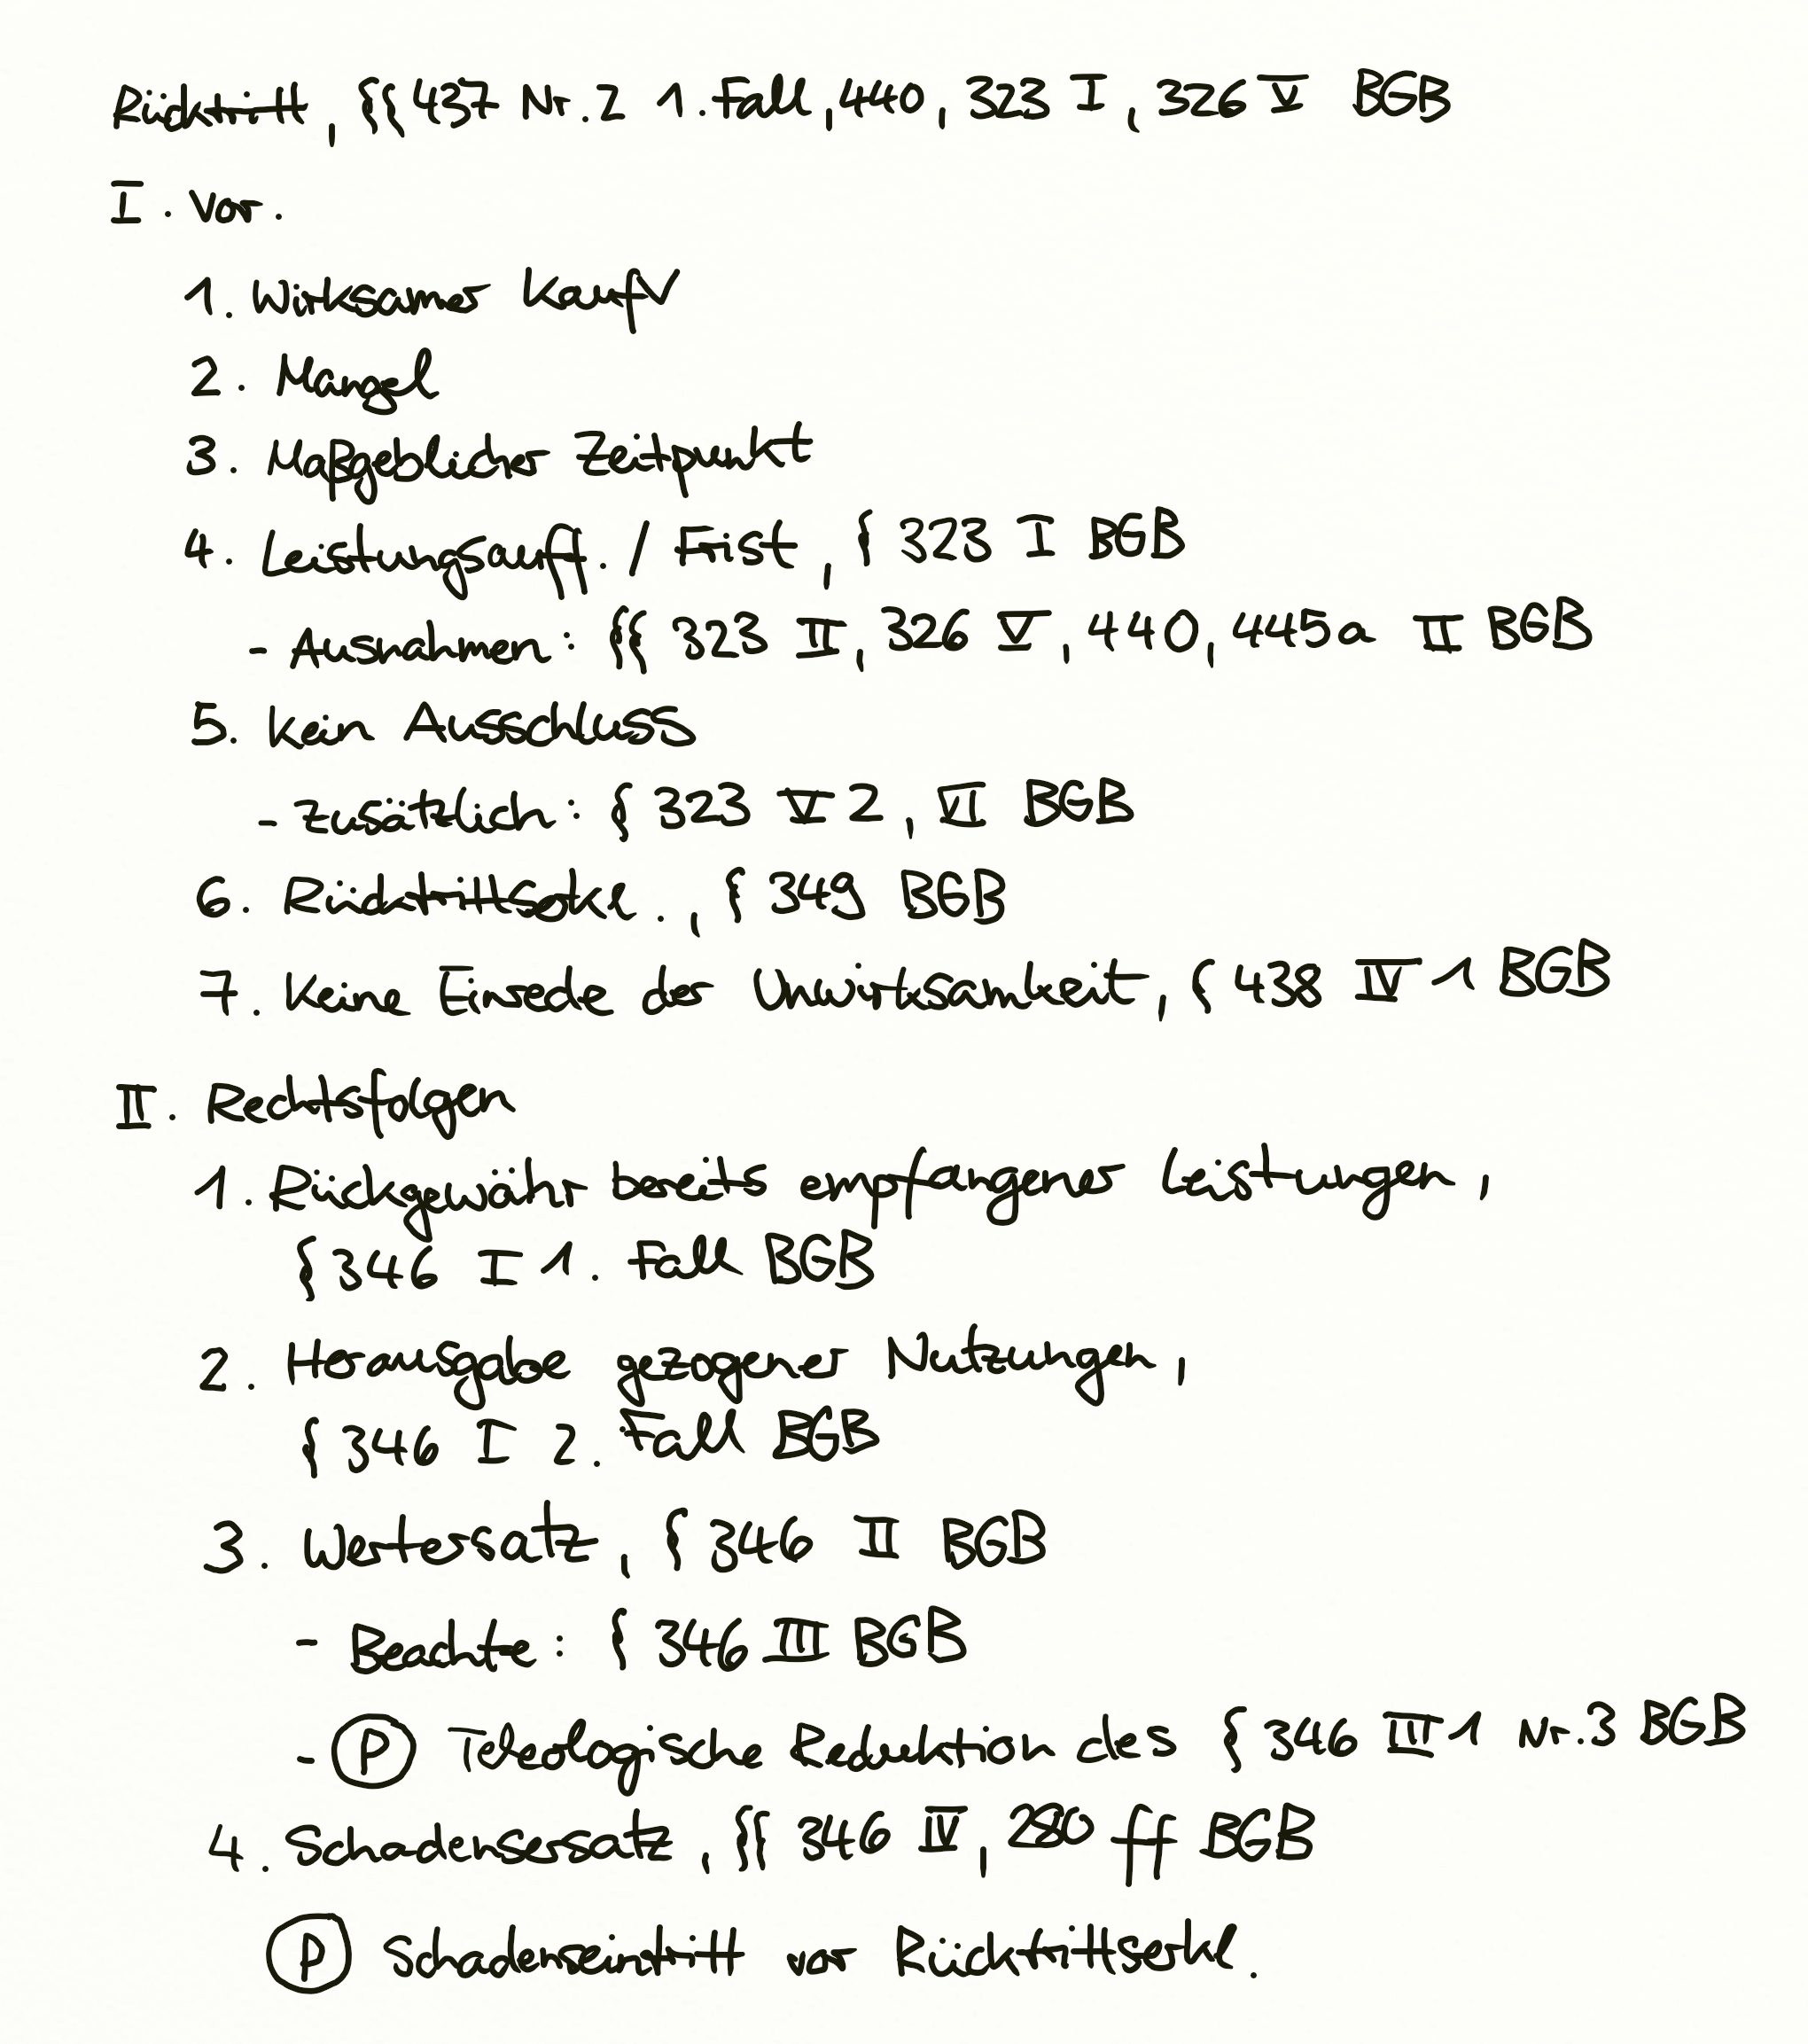 Rücktritt, §§ 437 Nr. 2 1. Fall, 440, 323 I, 326 V BGB
I. Vor.
1. Wirksamer KaufV
2. Mangel
3. Maßgeblicher Zeitpunkt
4. Leistungsauff. / Frist, § 323 I BGB
- Ausnahmen: §§ 323 II, 326 V, 440, 445a II BGB
5. Kein Ausschluss
- Zusätzlich: § 323 V 2, VI BGB
6. Rücktrittserkl., § 349 BGB
7. Keine Einrede der Unwirksamkeit, § 438 IV 1 BGB
II. Rechtsfolgen
1. Rückgewähr bereits empfangener Leistungen,
§ 346 I 1. Fall BGB
2. Herausgabe gezogener Nutzungen,
§ 346 I 2. Fall BGB
3. Wertersatz, § 346 II BGB
- Beachte: § 346 III BGB
- (P) Teleologische Reduktion des § 346 III 1 Nr. 3 BGB
4. Schadensersatz, §§ 346 IV, 280 ff BGB
(P) Schadenseintritt vor Rücktrittserkl.